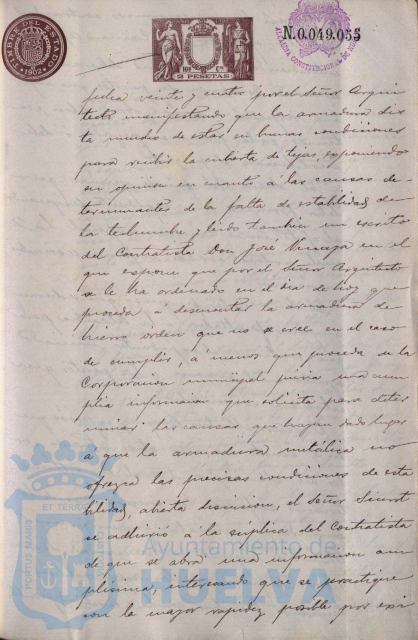 TIMBRE DEL ESTADO
1902
2 PESETAS
N.0.049.055
fecha veinte y cuatro por el Señor Arqui
tecto manifestando que la armadura dis
ta mucho de estar en buenas condiciones
para recibir la cubierta de tejas, exponiendo
su opinion en cuanto á las causas de-
terminantes de la falta de estabilidad de
la techumbre y leido tambien un escrito
del Contratista Don José en el
que expone que por el Señor Arquitecto
se le ha ordenado en el dia de hoy que
proceda á desmontar la armadura de
hierro orden que no se cree en el caso
de cumplir, á menos que proceda de la
Corporacion municipal previa una am
plia informacion que solicita para deter
minar las causas que hayan dado lugar
a que la armadura metálica no
ofrezca las precisas condiciones de esta
bilidad, abierta discusion, el Señor
se adhirió á la súplica del Contratista
de que se abra una informacion am
plisima, interesando que se practique
con la mayor rapidez posible por exi
PORTUS MARIS ET TERRAE
Ayuntamiento de
HUELVA